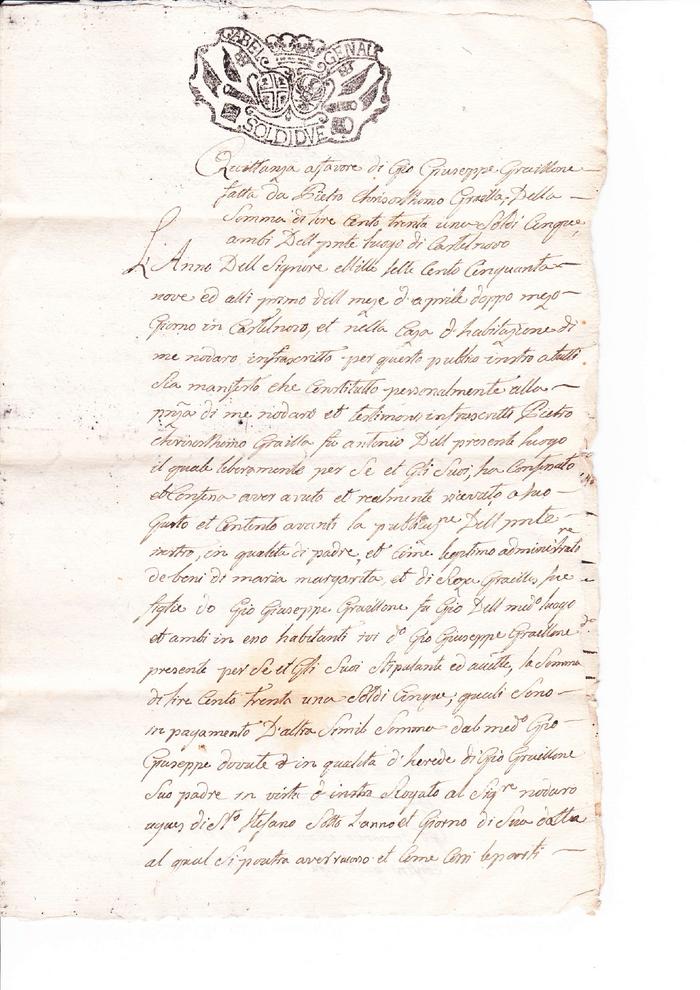 GABEL GENAL
SOLDI DVE
Quittanza a favore di Gio Giuseppe Graillone
fatta da Pietro Chrisosthomo Grailla, Della
Somma di lire Cento trenta una Soldi Cinque,
ambi Dell pnte luogo di Castelnovo
L'Anno Dell Signore Mille sette Cento Cinquanta
nove ed alli primo dell mese d'aprile doppo mezo
Giorno in Castelnovo, et nella Casa d'habitazione di
me nodaro infrascritto per questo publico instro a tutti
Sia manifesto che Constitutto personalmente alla
pnza di me nodaro et testimoni infrascritti Pietro
Chrisosthomo Grailla fu antonio Dell presente luogo
il quale liberamente per Se et Gli Suoi, ha Confessato
et Confessa aver avuto et realmente ricevuto a suo
Gusto et Contento avanti la Dell pnte
instro, in qualità di padre, et Come legitimo administratore
de beni di maria margarita, et di Graille, sue
figlie do Gio Giuseppe Graillone fu Gio Dell medo luogo
et ambi in esso habitanti ivi do Gio Giuseppe Graillone
presente per Se et Gli Suoi Stipulante ed accette, la Somma
di lire Cento trenta una Soldi Cinque; quali Sono
in pagamento D'altra Simil Somma dal medo Gio
Giuseppe dovute in qualità d'herede di Gio Graillone
Suo padre in virtù d'instro Rogato al Sigre nodaro
di Sto Stefano Sotto l'anno et Giorno di Sua data
al qual Si poutra aver et Come Cossi le parti